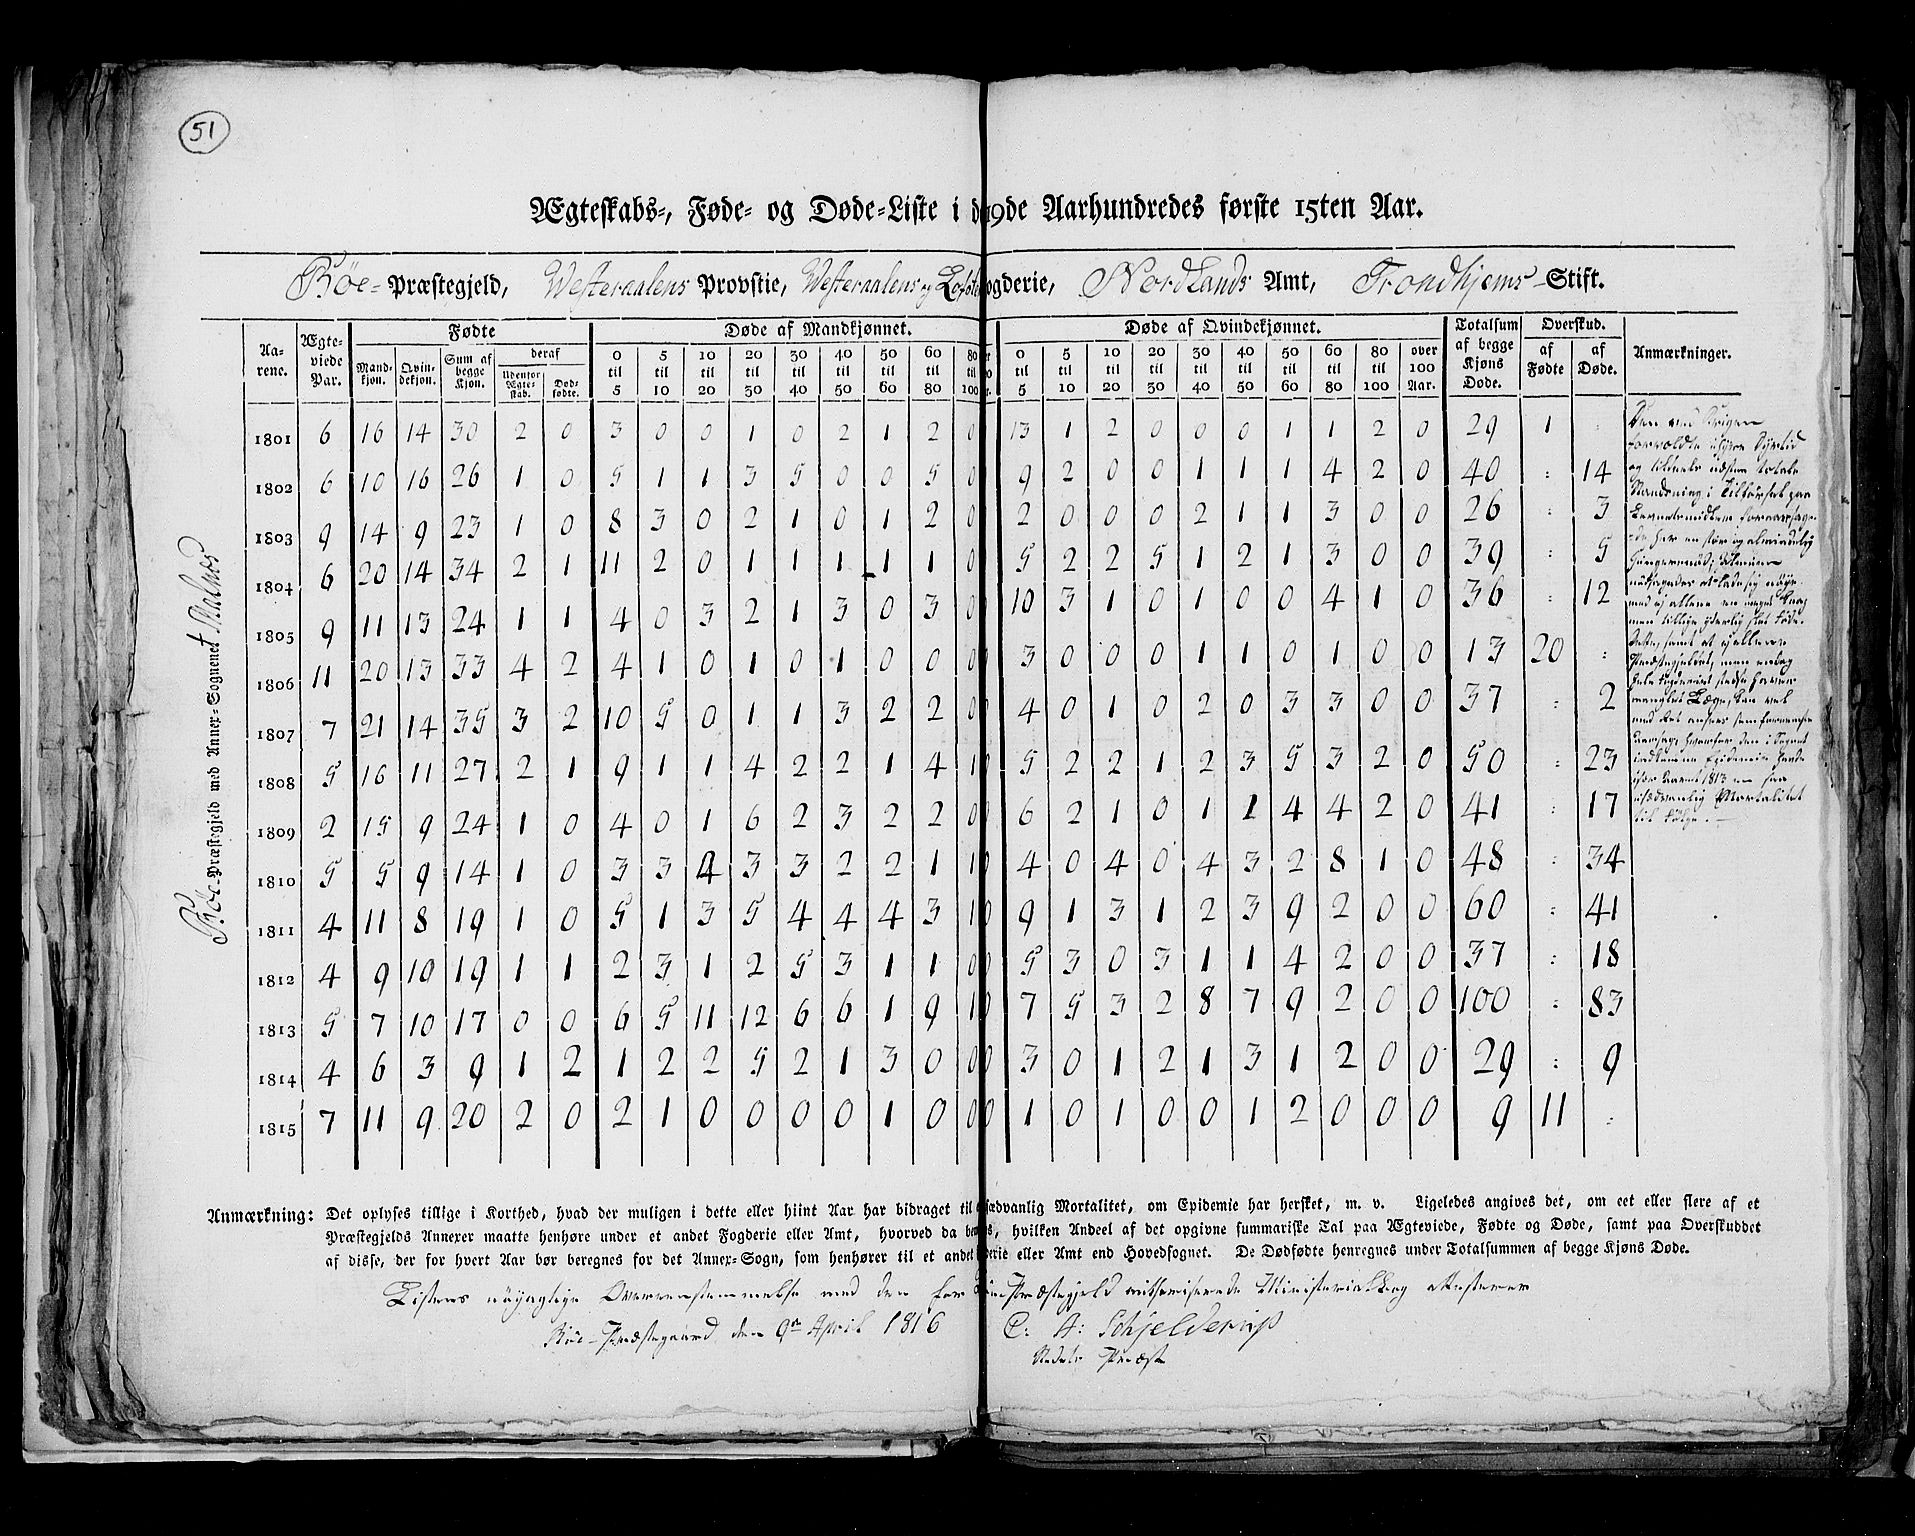 51
Ægteskabs-, Føde- og Døde-Liste i d 19de Aarhundredes første 15ten Aar.
Bøe- Præstegjeld, Westeraalens Provstie, Westeraalens og Lofot ogderie, Nordlands Amt, Trondhjems Stift.
Bøe-Præstegjeld med Annex-Sognenet Malnes
Aarene. Ægteviede Par. Fødte Døde af Mandkjønnet. Døde af Qvindekjønnet. Totalsum af begge Kjøns Døde. Overskud. Anmærkninger.
Mandkjøn. Qvindekjøn. Sum af begge Kjøn. deraf Udenfor Ægteskab. Dødfødte. 0 til 5 5 til 10 10 til 20 20 til 30 30 til 40 40 til 50 50 til 60 60 til 80 80 til 100 0 til 5 5 til 10 10 til 20 20 til 30 30 til 40 40 til 50 50 til 60 60 til 80 80 til 100 over 100 Aar. af Fødte af Døde.
1801 6 16 14 30 2 0 3 0 0 1 0 2 1 2 0 13 1 2 0 0 0 1 1 2 0 29 1 :
1802 6 10 16 26 1 0 5 1 1 3 5 0 0 5 0 9 2 0 0 1 1 1 4 2 0 40 : 14
1803 9 14 9 23 1 0 8 3 0 2 1 0 1 2 0 2 0 0 0 2 1 1 3 0 0 26 : 3
1804 6 20 14 34 2 1 11 2 0 1 1 1 1 1 0 5 2 2 5 1 2 1 3 0 0 39 : 5
1805 9 11 13 24 1 1 4 0 3 2 1 3 0 3 0 10 3 1 0 1 0 0 4 1 0 36 : 12
1806 11 20 13 33 4 2 4 1 0 1 0 1 0 0 0 0 3 0 0 0 1 1 0 1 0 0 13 20 :
1807 7 21 14 35 3 2 10 5 0 1 1 3 2 2 0 0 4 0 1 0 2 0 3 3 0 0 37 : 2
1808 5 16 11 27 2 1 9 1 1 4 2 2 1 4 1 0 5 2 2 1 2 3 5 3 2 0 50 : 23
1809 2 15 9 24 1 0 4 0 1 6 2 3 2 2 0 0 6 2 1 0 1 1 4 4 2 0 41 : 17
1810 5 5 9 14 1 0 3 3 4 3 3 2 2 1 1 0 4 0 4 0 4 3 2 8 1 0 48 : 34
1811 4 11 8 19 1 0 5 1 3 5 4 4 4 3 1 0 9 1 3 1 2 3 9 2 0 0 60 : 41
1812 4 9 10 19 1 1 2 3 1 2 5 3 1 1 0 0 5 3 0 3 1 1 4 2 0 0 37 : 18
1813 5 7 10 17 0 0 6 5 11 12 6 6 1 9 1 0 7 5 3 2 8 7 9 2 0 0 100 : 83
1814 4 6 3 9 1 2 1 2 2 5 2 1 3 0 0 0 3 0 1 2 1 3 1 2 0 0 29 : 9
1815 7 11 9 20 2 0 2 1 0 0 0 0 1 0 0 0 1 0 1 0 0 1 2 0 0 0 9 11 :
Den ved Krigen
forvoldte Dyrtid
og næsten totale
Standsning i Tilførsel paa
Levnetsmidlene
her en stor og almindelig
Hungersnød;
men tillige yderlig slet Føde.
Præstegjeldet, men endog
manglet Læge, kan vel
Aarsag,
Epidemie
Aaret 1813 en saa
usædvanlig Mortalitet
til Følge.
Anmærkning: Det oplyses tillige i Korthed, hvad der muligen i dette eller hiint Aar har bidraget til usædvanlig Mortalitet, om Epidemie har hersket, m. v. Ligeledes angives det, om eet eller flere af et
Præstegjelds Annexer maatte henhøre under et andet Fogderie eller Amt, hvorved da be s, hvilken Andeel af det opgivne summariske Tal paa Ægteviede, Fødte og Døde, samt paa Overskuddet
af disse, der for hvert Aar bør beregnes for det Annex-Sogn, som henhører til et andet derie eller Amt end Hovedsognet. De Dødfødte henregnes under Totalsummen af begge Kjøns Døde.
Listens nøyagtige Overeensstemmelse med den for Bøe Præstegjeld authoriserede Ministerialbog attesterer
Bøe-Præstegaard den 9de April 1816 C: A: Schjelderup
Præst